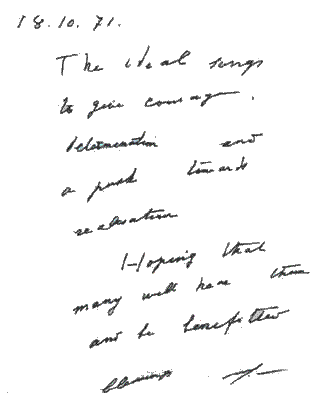 18.10.71.
The ideal songs
to give courage,
determination and
a push towards
realisation
Hoping that
many will hear them
and be benefitted
blessings